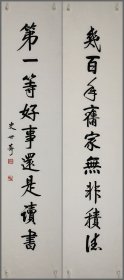 幾百年舊家無非積德
第一等好事還是讀書